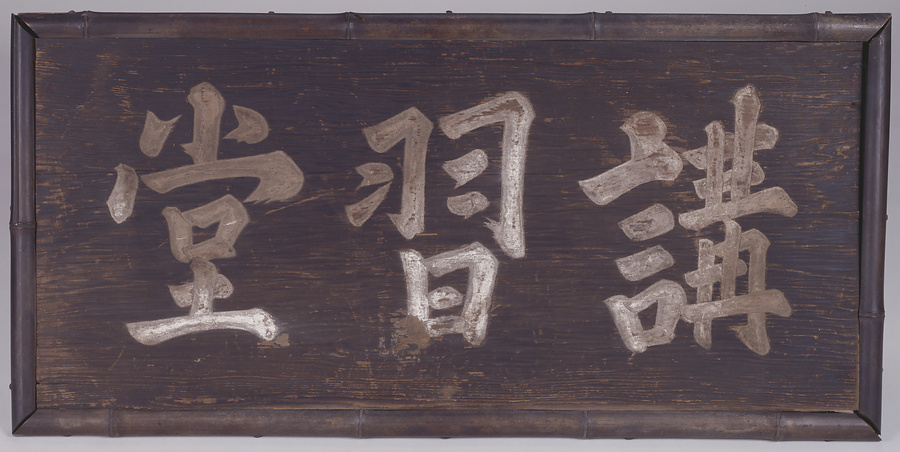 講習堂